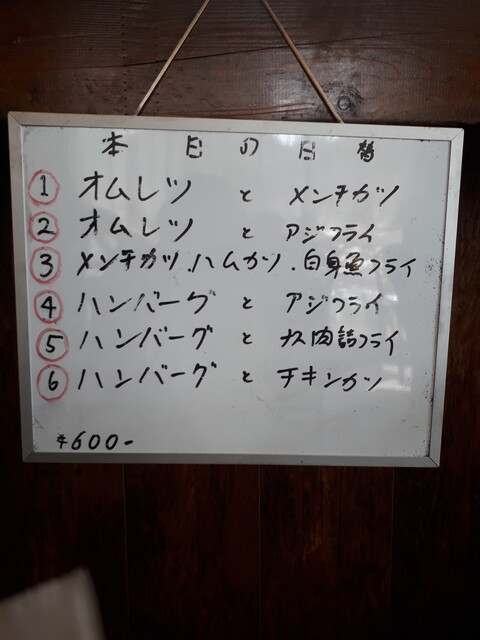 本日の日替
① オムレツ と メンチカツ
② オムレツ と アジフライ
③ メンチカツ.ハムカツ.白身魚フライ
④ ハンバーグ と アジフライ
⑤ ハンバーグ と ナス肉詰フライ
⑥ ハンバーグ と チキンカツ
¥600-